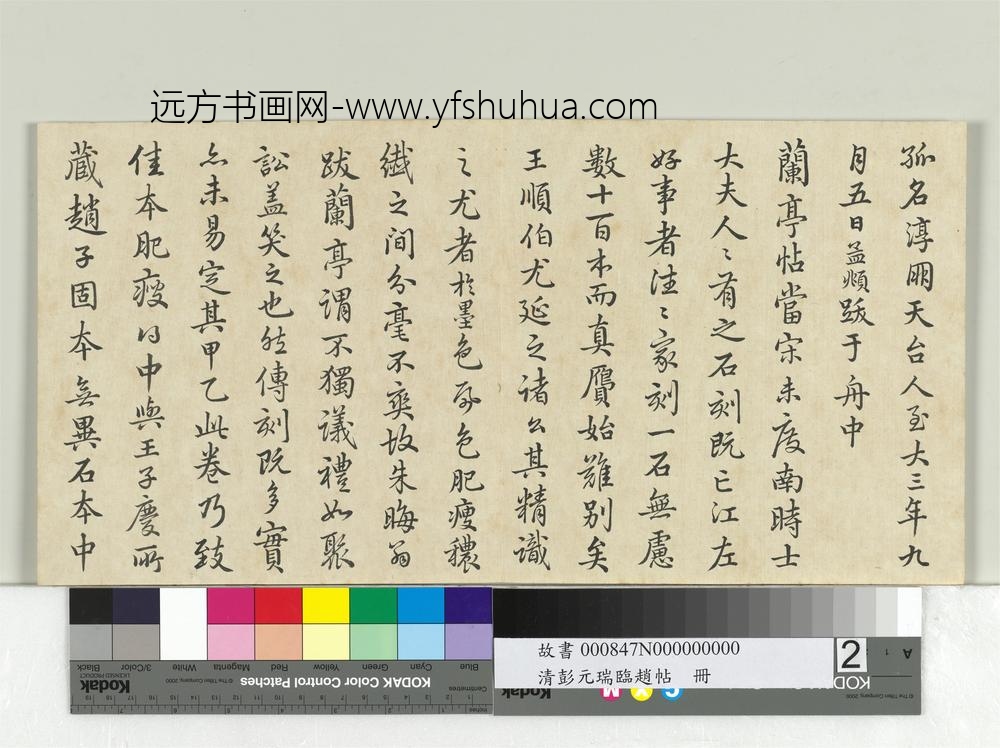 远方书画网-www.yfshuhua.com
孤名淳朋天台人至大三年九
月五日孟頫跋于舟中
蘭亭帖當宋未度南時士
大夫人〻有之石刻既亡江左
好事者往〻家刻一石無慮
數十百本而真贗始難別矣
王順伯尤延之諸公其精識
之尤者於墨色𢇁色肥瘦穠
纖之間分毫不爽故朱晦翁
跋蘭亭謂不獨議禮如聚
訟盖笑之也然傳刻既多實
亦未易定其甲乙此卷乃致
佳本肥瘦得中與王子慶所
藏趙子固本無異石本中
故書 000847N000000000
清彭元瑞臨趙帖 冊
2
KODAK Color Control Patches
Blue Cyan Green Yellow Red Magenta White 3/Color Black
Kodak
LICENSED PRODUCT
© The Tiffen Company, 2000
Centimetres
Inches
A 1
M Y C